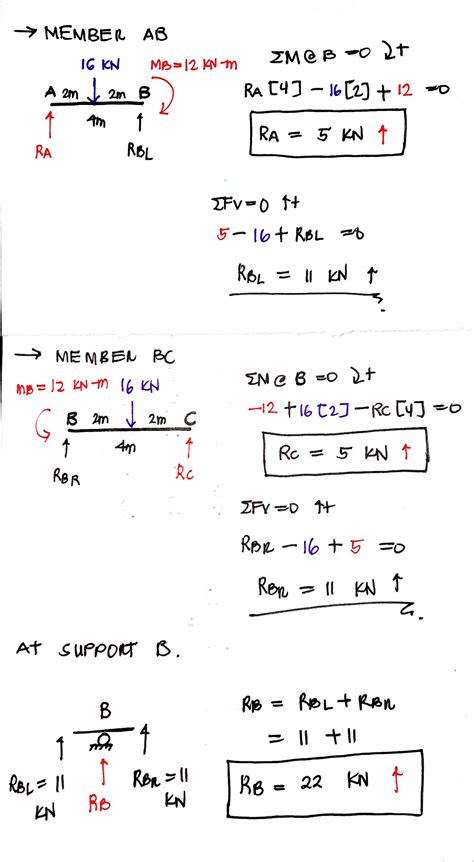 → MEMBER AB
16 KN MB=12 KN-m
A 2m 2m B
4m
RA RBL
ΣM@B=0 ↻+
RA[4] - 16[2] + 12 =0
RA = 5 KN ↑
ΣFV=0 ↑+
5 - 16 + RBL =0
RBL = 11 KN ↑
→ MEMBER BC
MB=12 KN-m 16 KN
B 2m 2m C
4m
RBR RC
ΣM@B=0 ↻+
-12 +16[2] - RC[4] =0
RC = 5 KN ↑
ΣFV=0 ↑+
RBR - 16 + 5 =0
RBR = 11 KN ↑
At SUPPORT B.
B
RBL=11 KN RB RBR=11 KN
RB = RBL + RBR
= 11 + 11
RB = 22 KN ↑